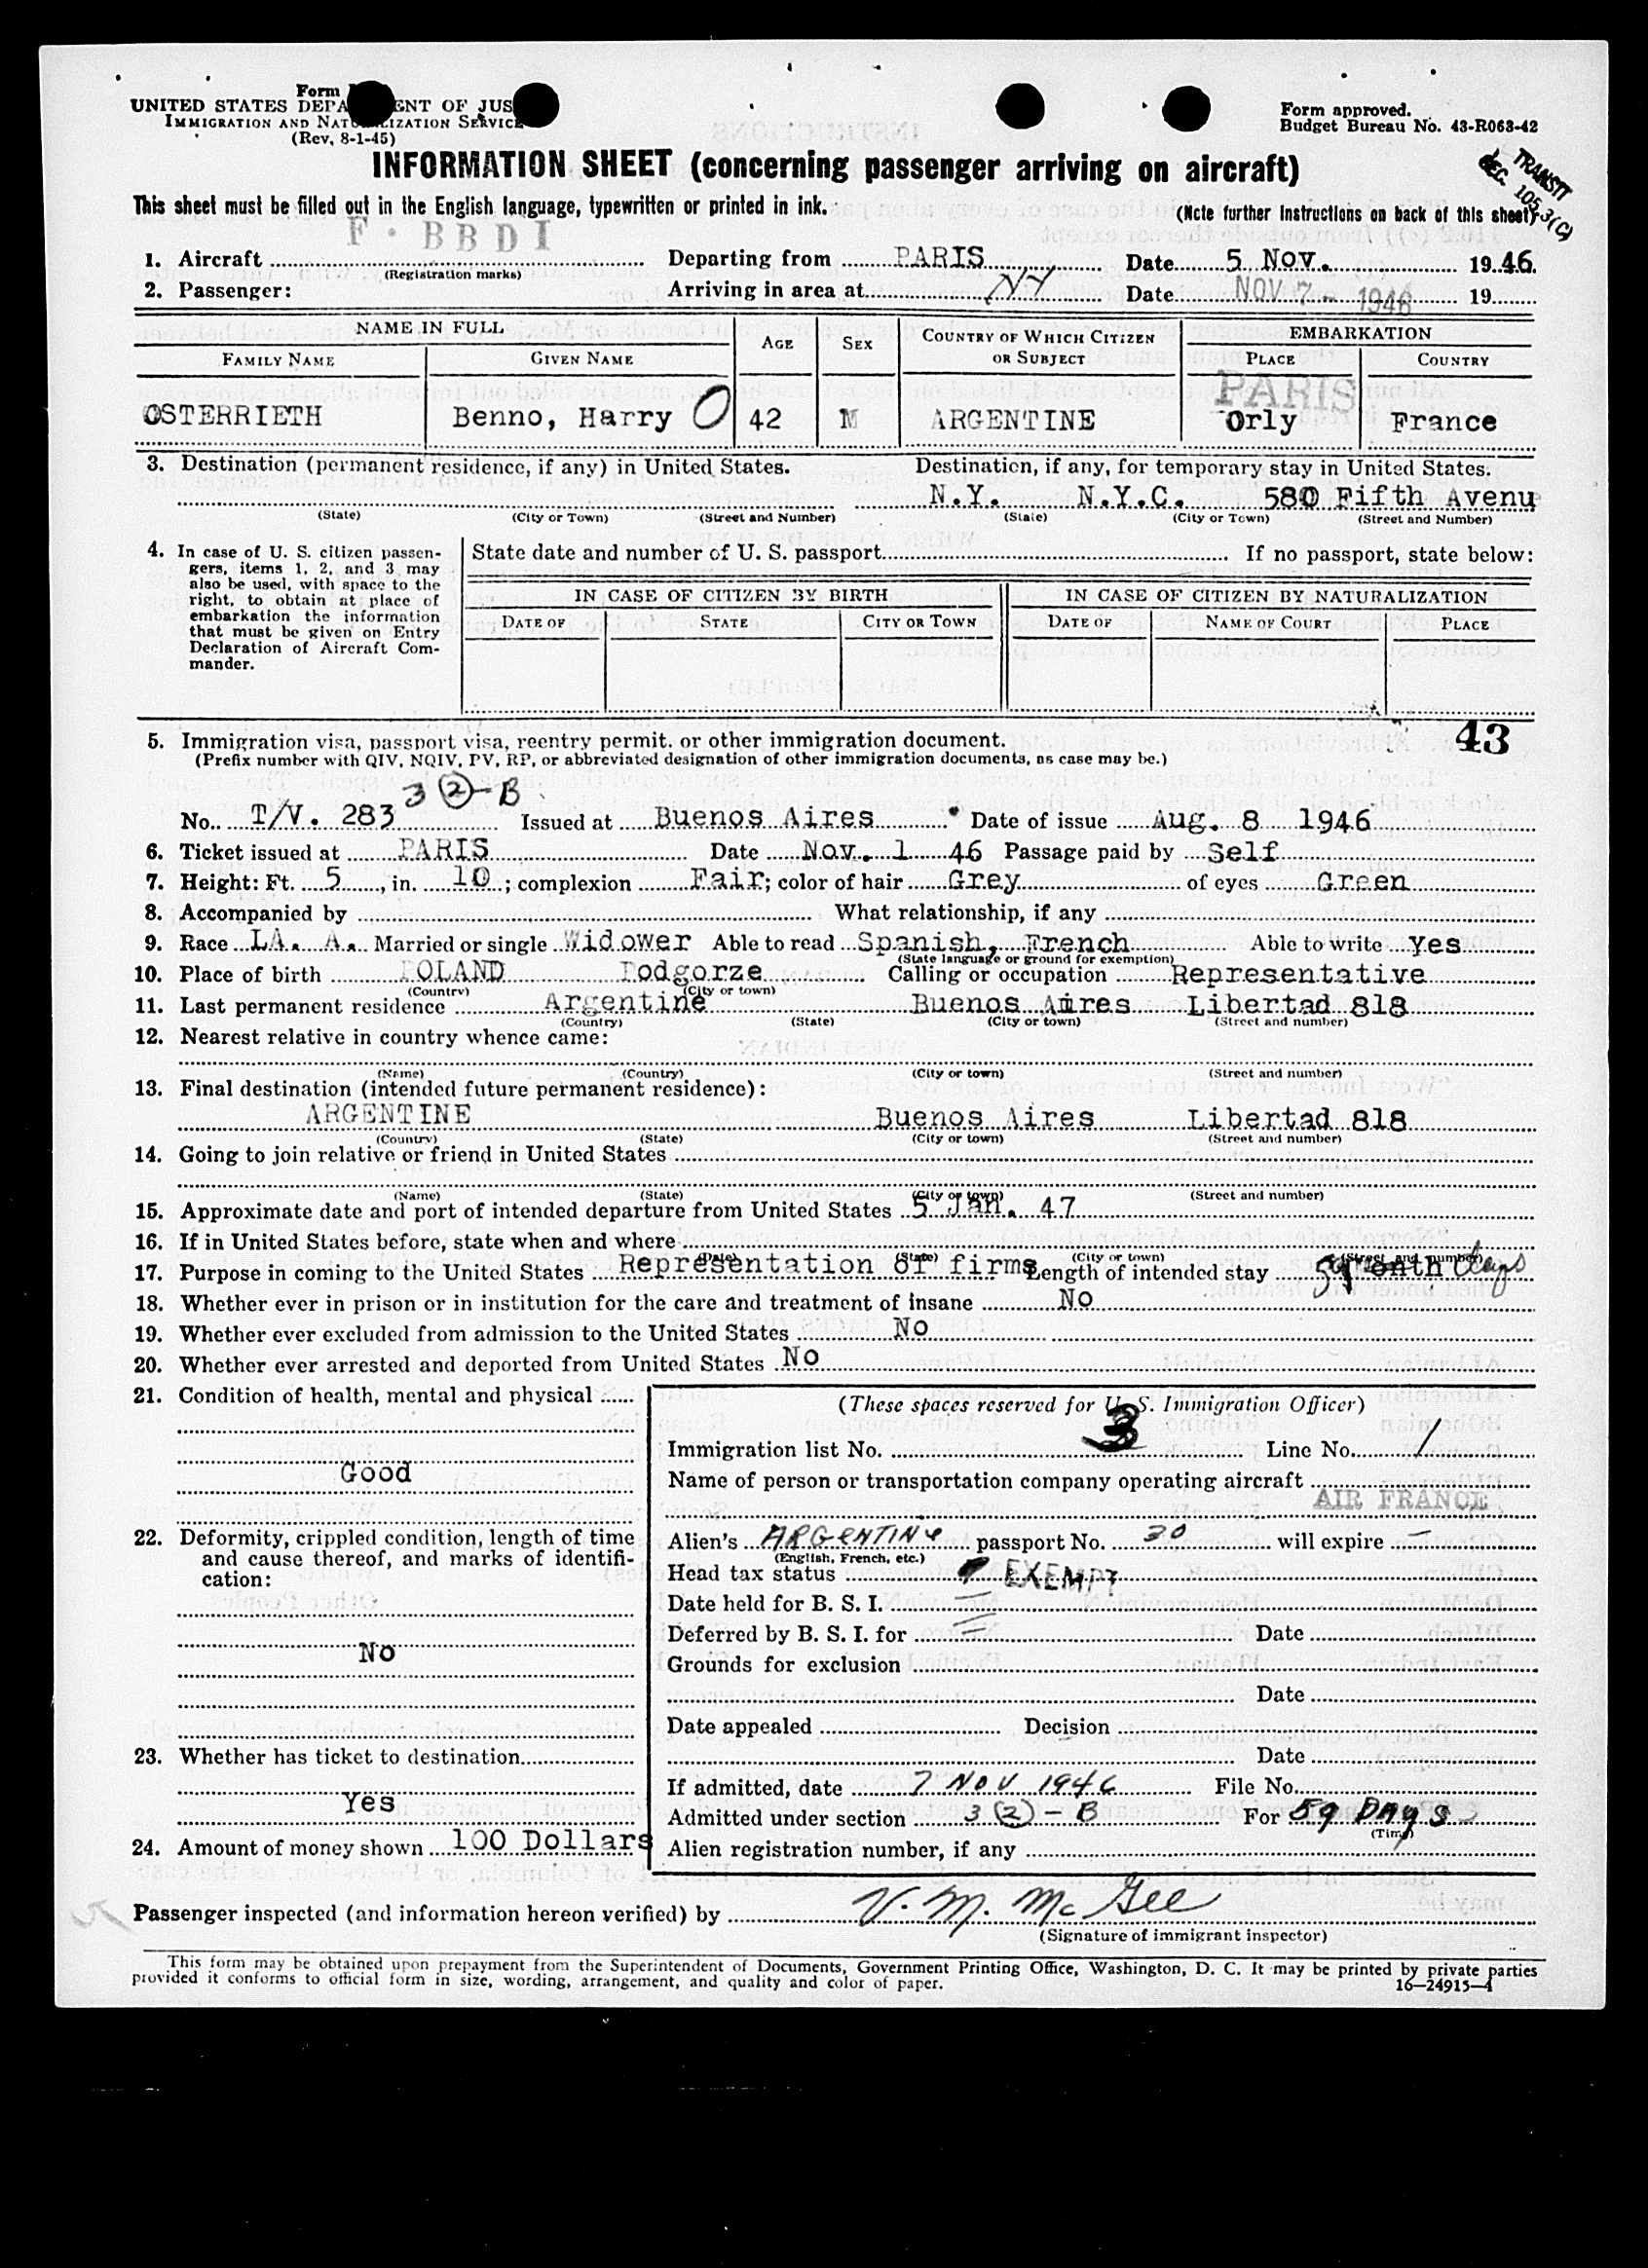 Form
UNITED STATES DEPA ENT OF JUS
IMMIGRATION AND NATURALIZATION SERVICE
(Rev. 8-1-45)
Form approved.
Budget Bureau No. 43-R063-42
INFORMATION SHEET (concerning passenger arriving on aircraft)
TRANSIT
SEC. 105.3(C)
This sheet must be filled out in the English language, typewritten or printed in ink.
(Note further instructions on back of this sheet)
F - BBDI
1. Aircraft (Registration marks) Departing from PARIS Date 5 Nov. 1946.
2. Passenger: Arriving in area at NY Date NOV 7 - 1946 19
NAME IN FULL AGE SEX COUNTRY OF WHICH CITIZEN OR SUBJECT EMBARKATION
FAMILY NAME GIVEN NAME PLACE COUNTRY
PARIS
OSTERRIETH Benno, Harry O 42 M ARGENTINE Orly France
3. Destination (permanent residence, if any) in United States. Destination, if any, for temporary stay in United States.
N.Y. N.Y.C. 580 Fifth Avenu
(State) (City or Town) (Street and Number) (State) (City or Town) (Street and Number)
4. In case of U. S. citizen passengers, items 1, 2, and 3 may also be used, with space to the right, to obtain at place of embarkation the information that must be given on Entry Declaration of Aircraft Commander.
State date and number of U. S. passport If no passport, state below:
IN CASE OF CITIZEN BY BIRTH IN CASE OF CITIZEN BY NATURALIZATION
DATE OF STATE CITY OR TOWN DATE OF NAME OF COURT PLACE
43
5. Immigration visa, passport visa, reentry permit, or other immigration document.
(Prefix number with QIV, NQIV, PV, RP, or abbreviated designation of other immigration documents, as case may be.)
3 (2)-B
No. T/V. 283 Issued at Buenos Aires Date of issue Aug. 8 1946
6. Ticket issued at PARIS Date Nov. 1 46 Passage paid by Self
7. Height: Ft. 5, in. 10; complexion Fair; color of hair Grey of eyes Green
8. Accompanied by What relationship, if any
9. Race LA. A. Married or single Widower Able to read Spanish, French Able to write yes
(State language or ground for exemption)
10. Place of birth POLAND Podgorze Calling or occupation Representative
(Country) (City or town)
11. Last permanent residence Argentine Buenos Aires Libertad 818
(Country) (State) (City or town) (Street and number)
12. Nearest relative in country whence came:
(Name) (Country) (City or town) (Street and number)
13. Final destination (intended future permanent residence):
ARGENTINE Buenos Aires Libertad 818
(Country) (State) (City or town) (Street and number)
14. Going to join relative or friend in United States
(Name) (State) (City or town) (Street and number)
15. Approximate date and port of intended departure from United States 5 Jan. 47
16. If in United States before, state when and where
(Date) (State) (City or town) (Street and number)
17. Purpose in coming to the United States Representation of firms Length of intended stay 59 month days
18. Whether ever in prison or in institution for the care and treatment of insane No
19. Whether ever excluded from admission to the United States No
20. Whether ever arrested and deported from United States No
21. Condition of health, mental and physical
Good
22. Deformity, crippled condition, length of time and cause thereof, and marks of identification:
No
23. Whether has ticket to destination
Yes
24. Amount of money shown 100 Dollars
(These spaces reserved for U. S. Immigration Officer)
Immigration list No. 3 Line No. 1
Name of person or transportation company operating aircraft
AIR FRANCE
Alien's ARGENTINE passport No. 30 will expire —
(English, French, etc.)
Head tax status EXEMPT
Date held for B. S. I.
Deferred by B. S. I. for Date
Grounds for exclusion
Date
Date appealed Decision
Date
If admitted, date 7 NOV 1946 File No.
Admitted under section 3 (2) - B For 59 DAYS
(Time)
Alien registration number, if any
Passenger inspected (and information hereon verified) by V. M. McGee
(Signature of immigrant inspector)
This form may be obtained upon prepayment from the Superintendent of Documents, Government Printing Office, Washington, D. C. It may be printed by private parties
provided it conforms to official form in size, wording, arrangement, and quality and color of paper.
16—24915-4